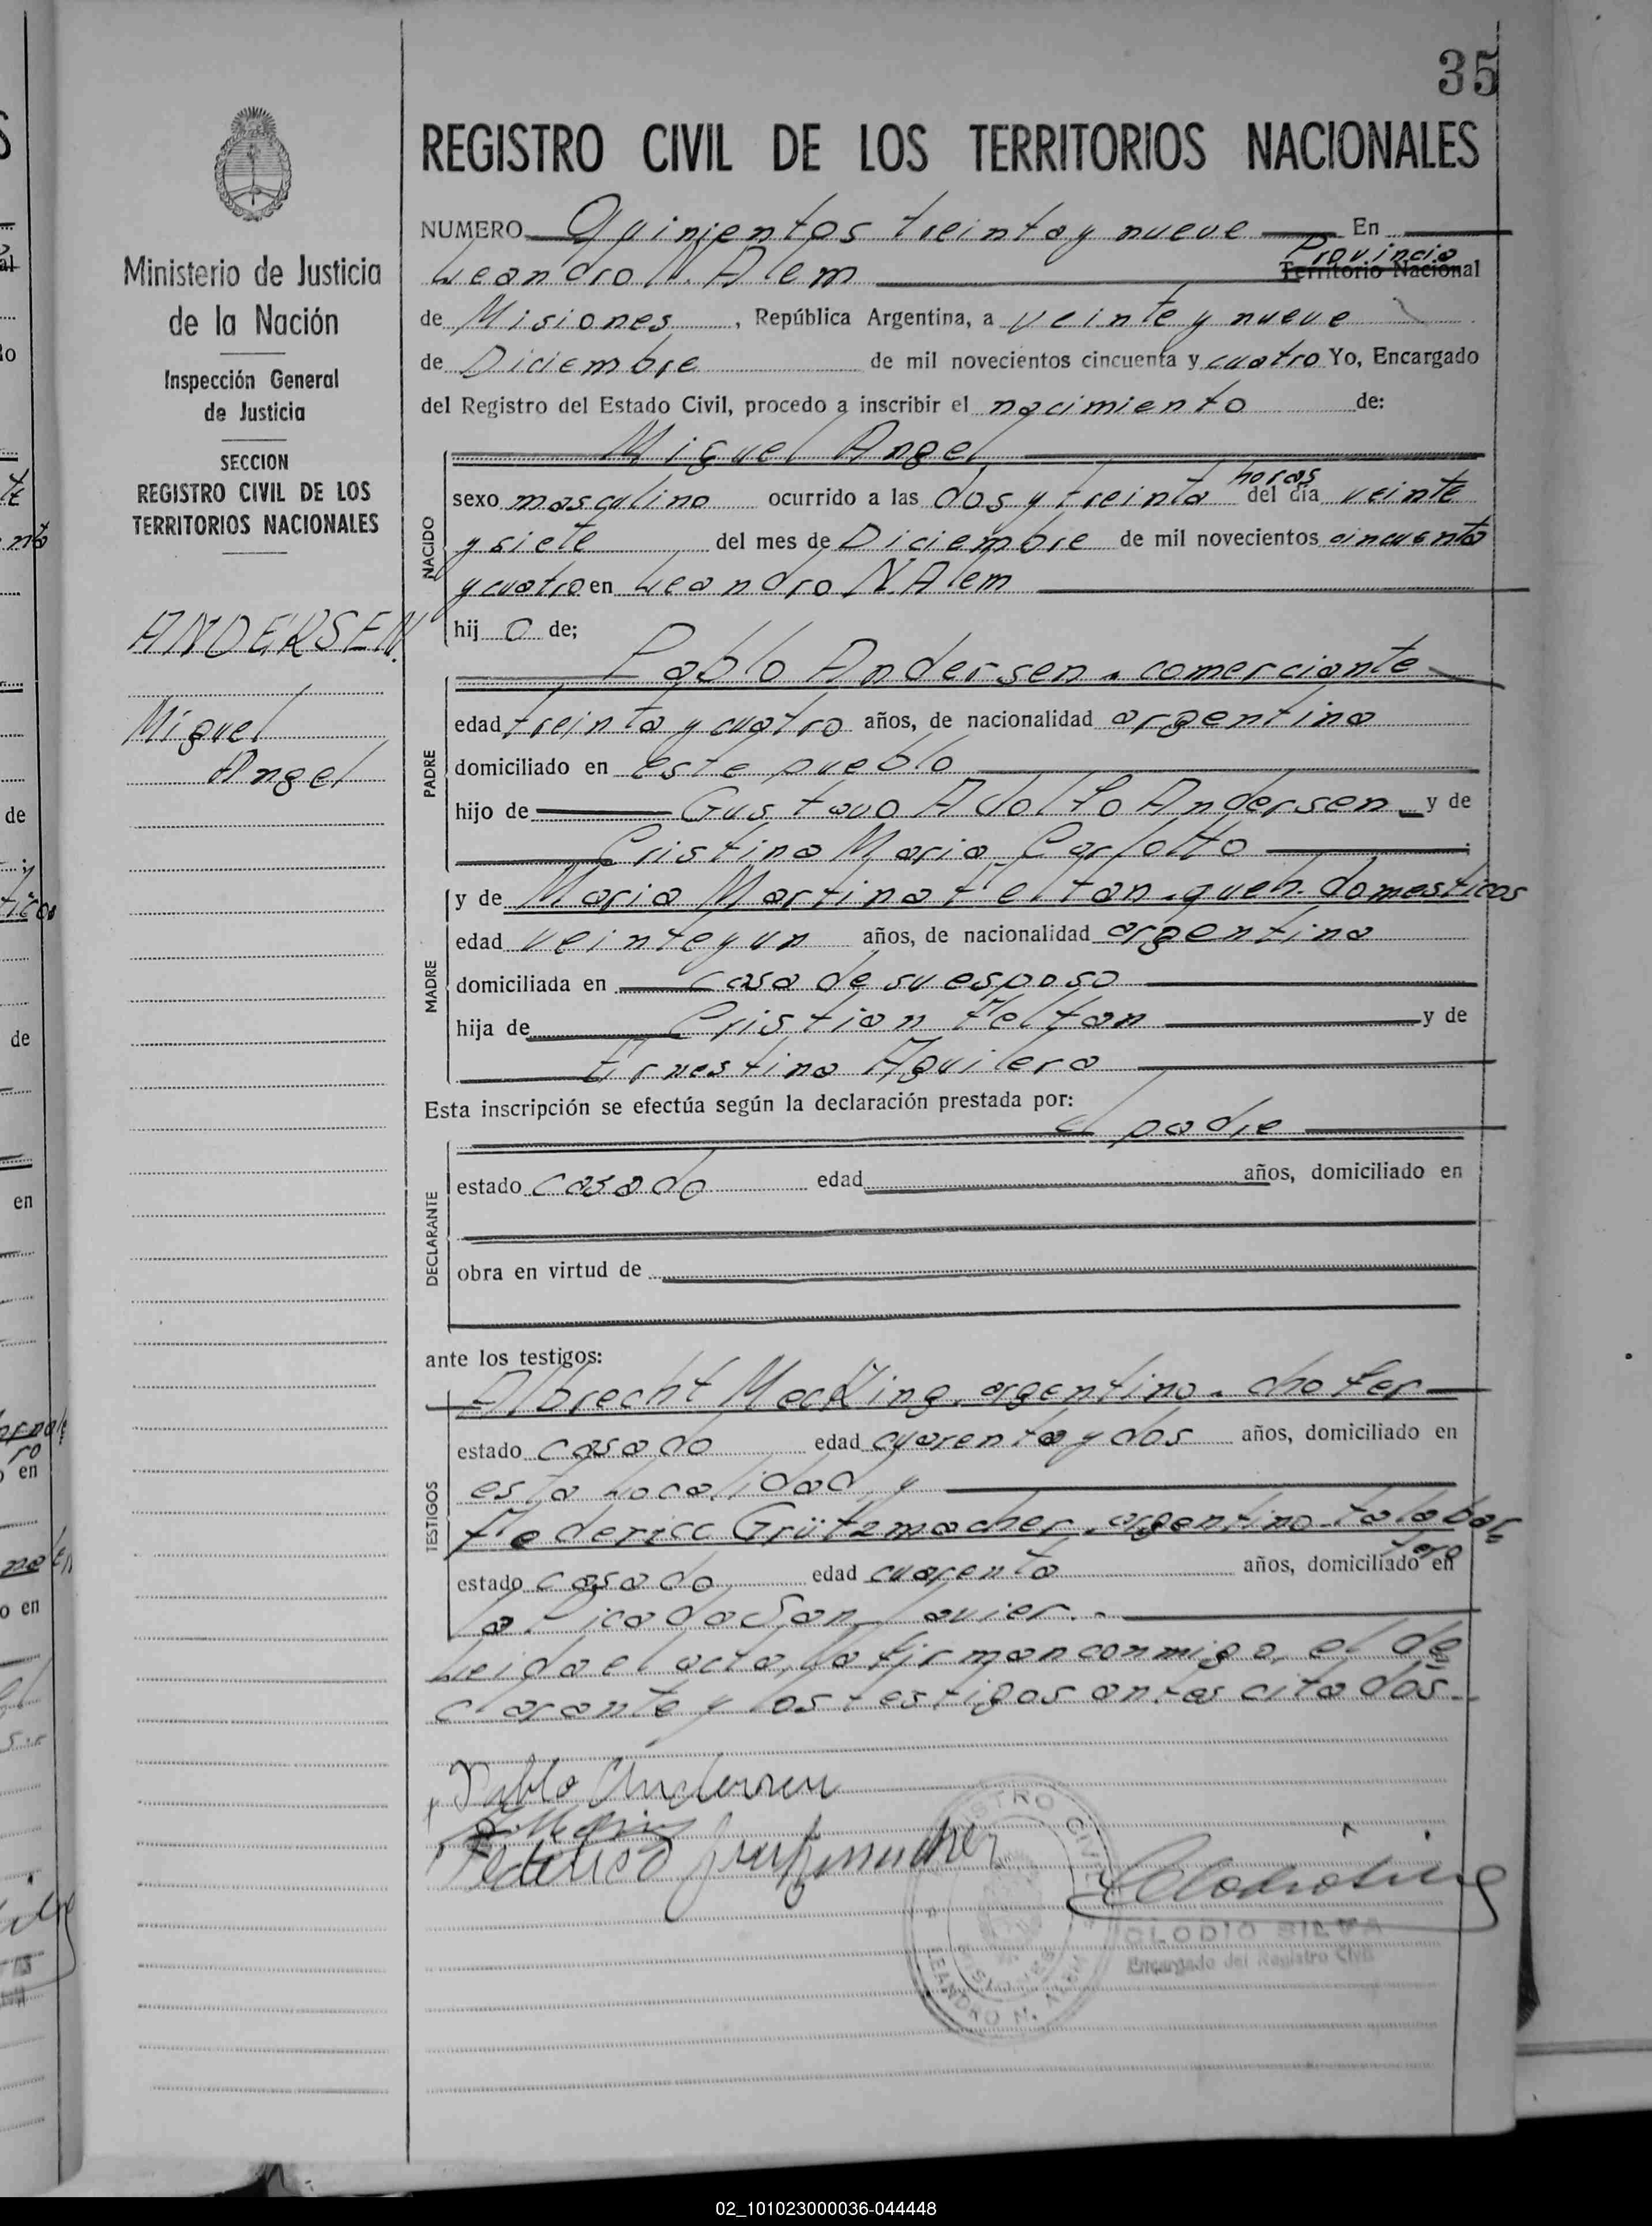 35
REGISTRO CIVIL DE LOS TERRITORIOS NACIONALES
Ministerio de Justicia
de la Nación
Inspección General
de Justicia
SECCION
REGISTRO CIVIL DE LOS
TERRITORIOS NACIONALES
ANDERSEN.
Miguel
Angel
NUMERO Quinientos treinta y nueve En
Leandro N. Alem Provincia Territorio Nacional
de Misiones, República Argentina, a veinte y nueve
de Diciembre de mil novecientos cincuenta y cuatro Yo, Encargado
del Registro del Estado Civil, procedo a inscribir el nacimiento de:
NACIDO
Miguel Angel
sexo masculino ocurrido a las dos y treinta horas del día veinte
y siete del mes de Diciembre de mil novecientos cincuenta
y cuatro en Leandro N. Alem
hij o de;
PADRE
Pablo Andersen. comerciante
edad treinta y cuatro años, de nacionalidad argentina
domiciliado en este pueblo
hijo de Gustavo Adolfo Andersen y de
Cristina Maria Carlotto
MADRE
y de Maria Martina Feltan. queh. domesticos
edad veinte y un años, de nacionalidad argentina
domiciliada en casa de su esposo
hija de Cristian Feltan y de
Ernestina Aguilera
Esta inscripción se efectúa según la declaración prestada por:
DECLARANTE
el padre
estado casado edad años, domiciliado en
obra en virtud de
ante los testigos:
TESTIGOS
Albrecht MecKing. argentino. chofer
estado casado edad cuarenta y dos años, domiciliado en
esta Localidad, y
Federico Grützmacher. argentino talabar
tero
estado casado edad cuarenta años, domiciliado en
la Picada San Javier. -
Leida el acta, la firman conmigo, el de
clarante y los testigos antes citados.-
Pablo Andersen
Federico Grützmacher
REGISTRO CIVIL
MISIONES
LEANDRO N. ALEM
CLODIO SILVA
Encargado del Registro Civil
02_101023000036-044448